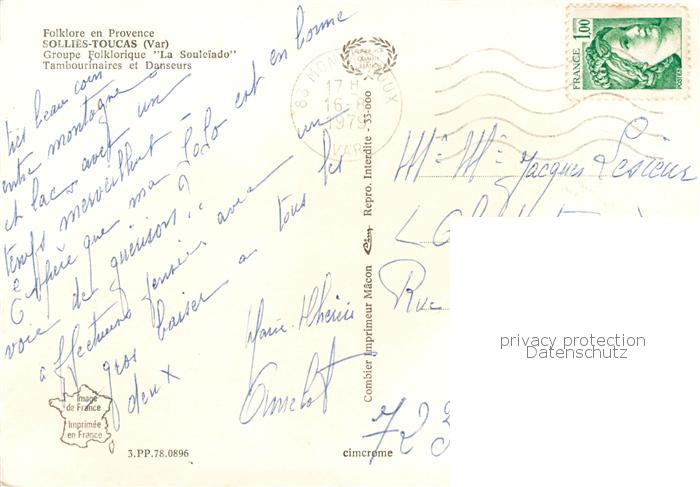 Folklore en Provence
SOLLIÈS-TOUCAS (Var)
Groupe Folklorique "La Souleïado"
Tambourinaires et Danseurs
très beau coin
entre montagnes
et lacs avec un
temps merveilleux
que ma Lolo est en bonne
voie de guérison
affectueuses pensées avec un
gros baiser à tous les
deux
Marie-Thérèse
83
VAR
17 H
16-8
1979
FRANCE
1,00
POSTES
Mr Mme Jacques Lesieur
Rue
72
Combier Imprimeur Mâcon
Cim
Repro. Interdite - 33-000
privacy protection
Datenschutz
Image
de France
Imprimée
en France
3.PP.78.0896
cimcrome